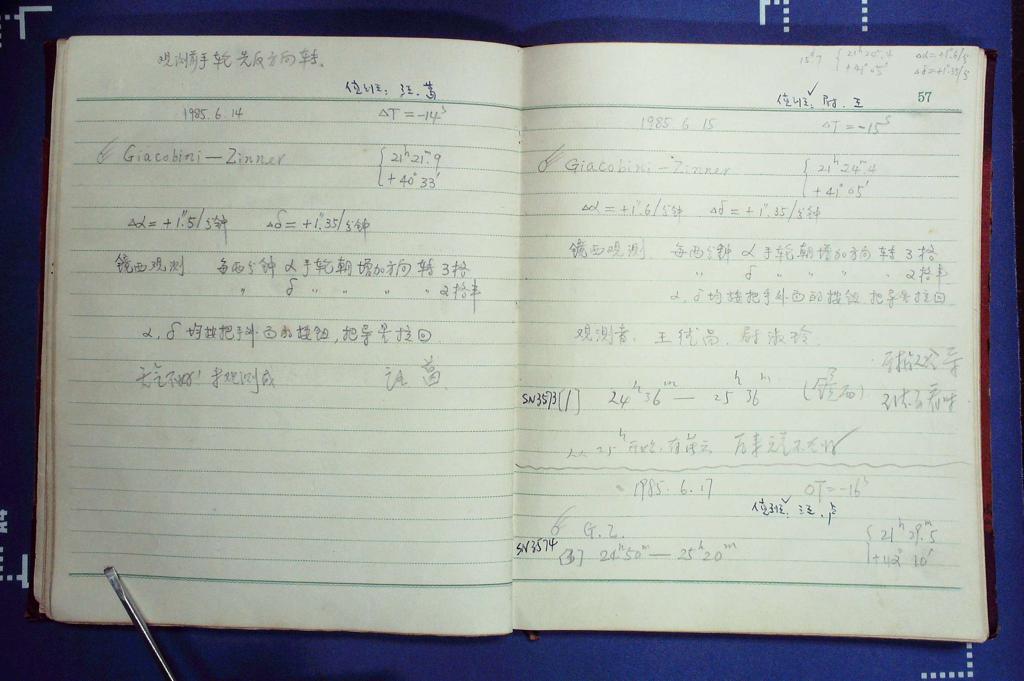 观测前手轮先反方向转.
值班: 汪. 葛
1985. 6. 14 ΔT = -14ˢ
Giacobini — Zinner { 21ʰ 21ᵐ.9
+40° 33′
Δα = +1″.5/分钟 Δδ = +1″.35/分钟
镜西观测 每两分钟 α手轮朝增加方向转3格
〃 δ 〃 〃 〃 〃 2格半
α, δ 均按把手外面的按钮, 把导星拉回
天气不好! 未观测成 汪 葛
15ᵈ.7 { 21ʰ24ᵐ.4 Δα=+1″.6/分
+41° 05′ Δδ=+1″.35/分
值班: 尉. 王 57
1985. 6. 15 ΔT = -15ˢ
Giacobini - Zinner { 21ʰ 24ᵐ.4
+41° 05′
Δα = +1″.6/分钟 Δδ = +1″.35/分钟
镜西观测 每两分钟 α手轮朝增加方向转3格
〃 δ 〃 〃 〃 2格半
α, δ 均按把手外面的按钮, 把导星拉回
观测者: 王 尉淑玲.
SN3573 [1] 24ʰ 36ᵐ — 25ʰ 36ᵐ (镜西)
25ʰ开始, 有薄云 后来天气不太好
1985. 6. 17 ΔT = -16ˢ
值班: 汪. 卢
G. Z. { 21ʰ 29ᵐ.5
SN3574 24ʰ50ᵐ — 25ʰ20ᵐ +42° 10′